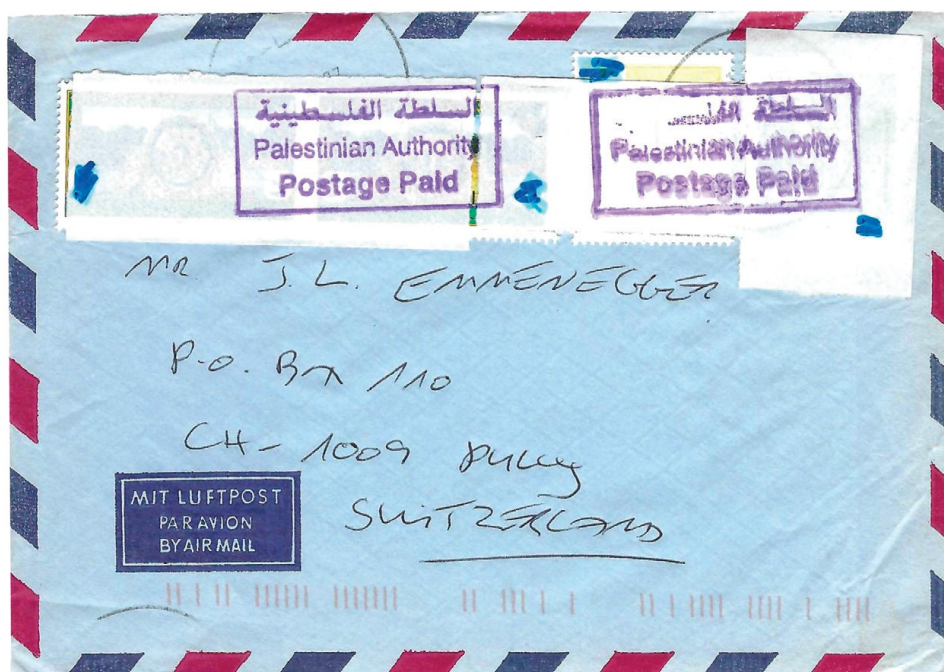 السلطة الفلسطينية
Palestinian Authority
Postage Paid
السلطة
Palestinian Authority
Postage Paid
MR J.L. EMMENEGGER
P.O. Box 110
CH-1009 Pully
SWITZERLAND
MIT LUFTPOST
PAR AVION
BY AIR MAIL